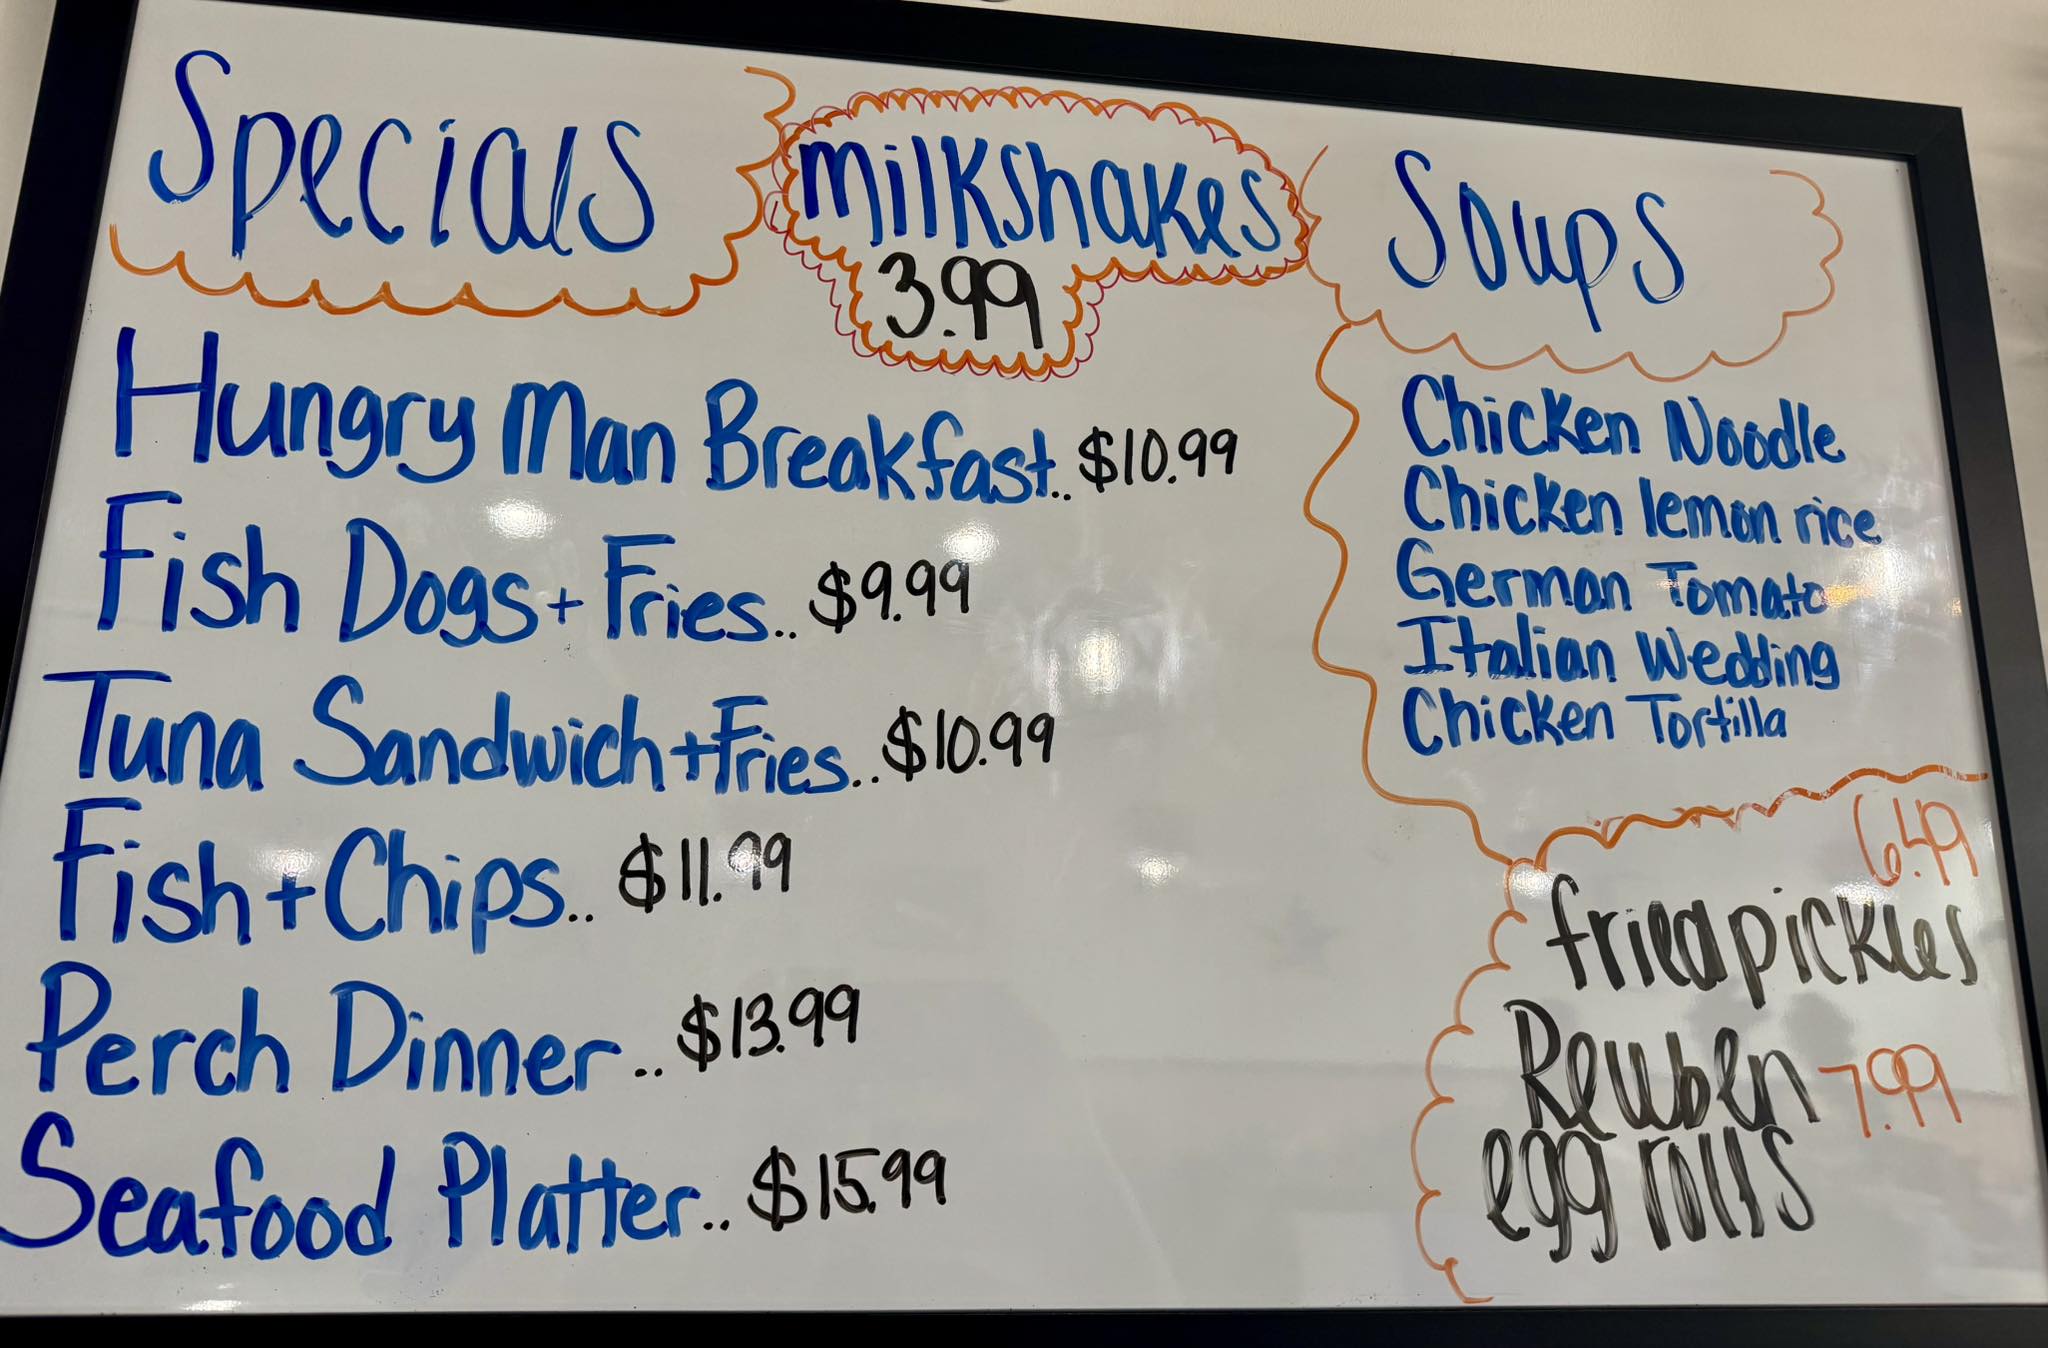 Specials
Hungry Man Breakfast.. $10.99
Fish Dogs + Fries.. $9.99
Tuna Sandwich + Fries.. $10.99
Fish + Chips.. $11.99
Perch Dinner.. $13.99
Seafood Platter.. $15.99
milkshakes
3.99
Soups
Chicken Noodle
Chicken lemon rice
German Tomato
Italian Wedding
Chicken Tortilla
6.49
fried pickles
Reuben 7.99
egg rolls